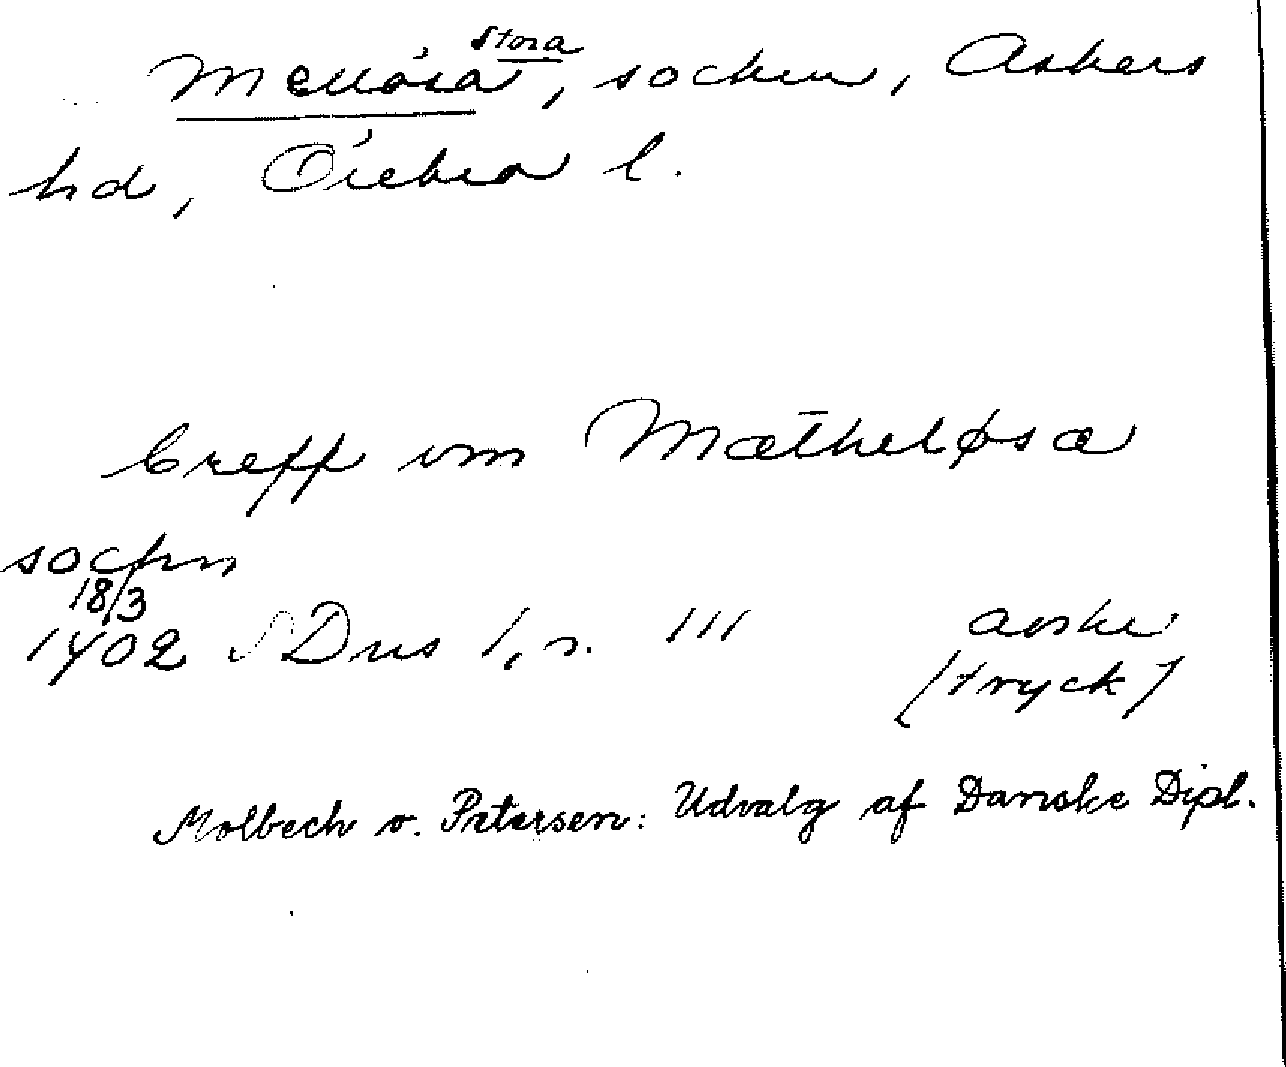 Stora
Mellösa, socken, Askers
hd, Örebro l.
Creff vm Mætheløsa
sochn
18/3
1402 SDns 1, s. 111 avskr
(tryck)
Molbech o. Petersen: Udvalg af Danske Dipl.